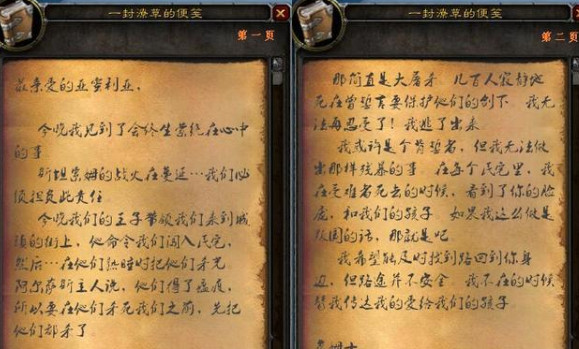 一封潦草的便笺
第一页
最亲爱的亚蜜利亚,
今晚我见到了会终生萦绕在心中
的事
斯坦索姆的战火在蔓延…我们必
须担负此责任
今晚我们的王子带领我们来到城
镇的街上,他命令我们闯入民宅,
然后…在他们熟睡时把他们杀死
阿尔萨斯主人说,他们得了瘟疫,
所以要在他们杀死我们之前,先把
他们都杀了
一封潦草的便笺
第二页
那简直是大屠杀 几百人寂静地
死在曾誓言要保护他们的剑下 我无
法再忍受了!我逃了出来
我或许是个背誓者,但我无法做
出那样残暴的事 在每个民宅里,我
在受难者死去的时候,看到了你的脸
庞,和我们的孩子 如果我这么做是
叛国的话,那就是吧
我希望能及时找到路回到你身
边,但路途并不安全 我不在的时候
替我传达我的爱给我们的孩子